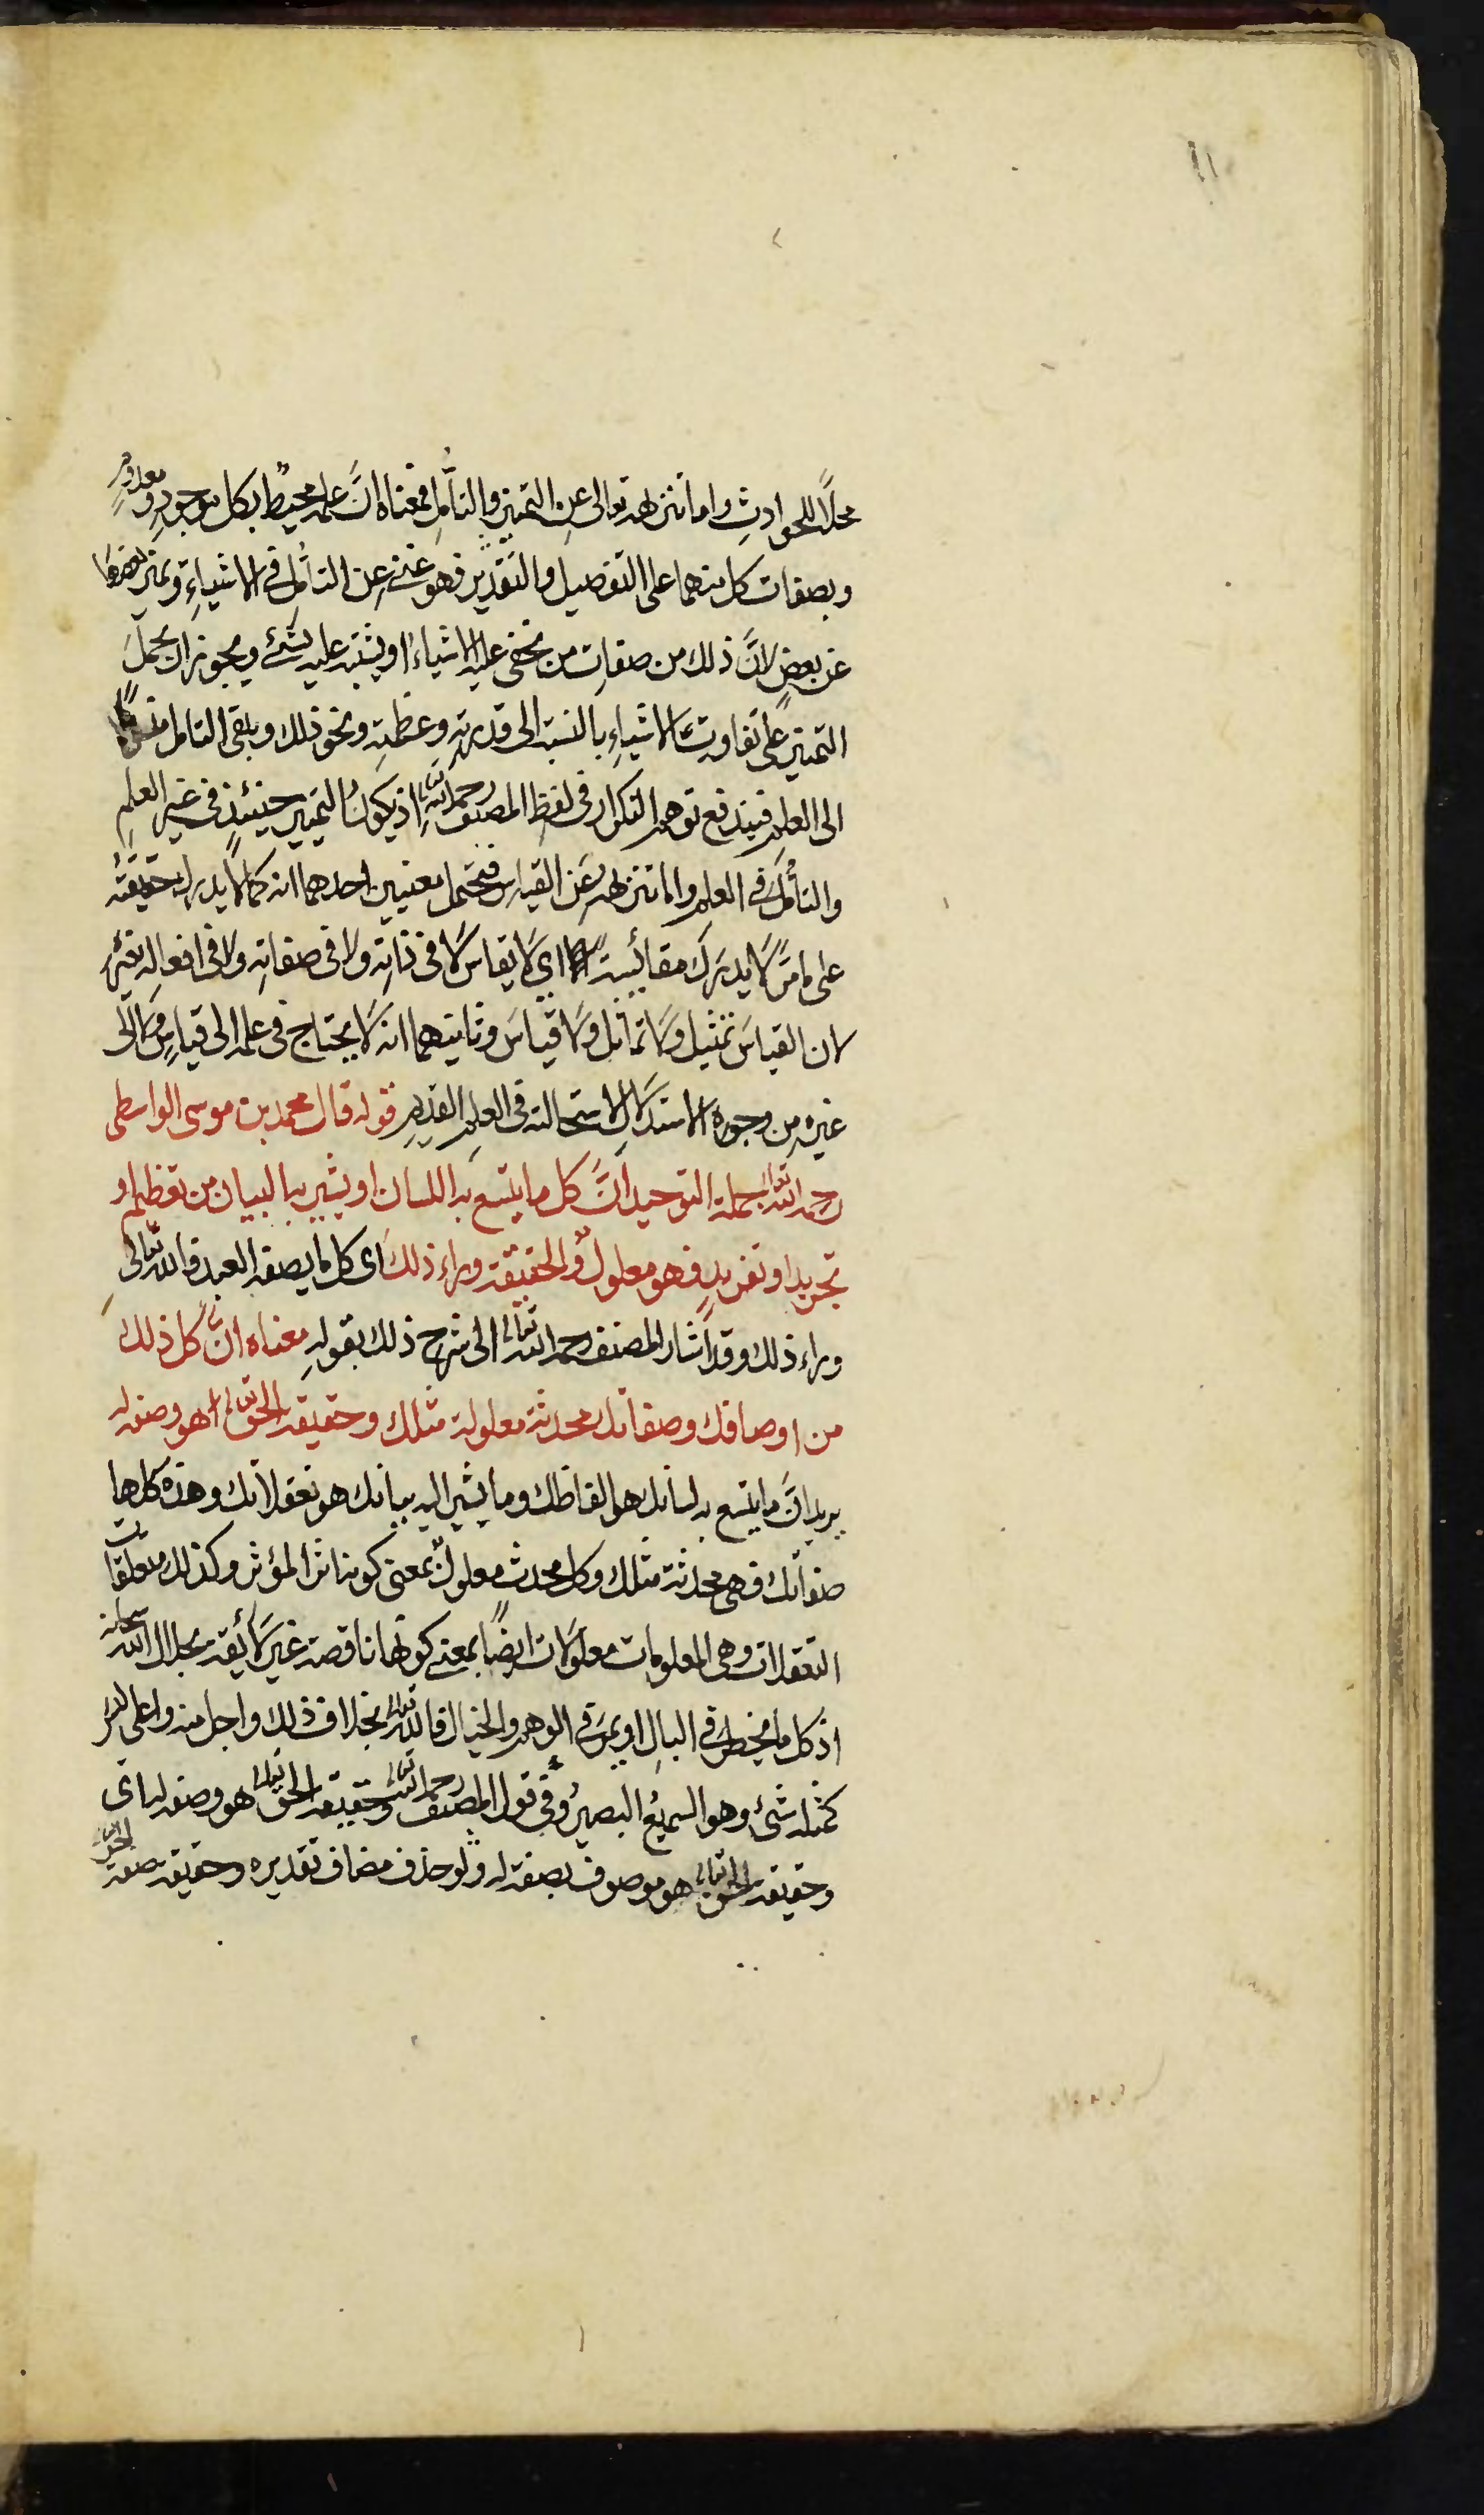 ١١
محلًا للحوادثِ واما تنزهه تعالى عن التمييز والتأمّلِ فمعناه انَّ علمه محيطٌ بكل موجودٍ ومعدومٍ
وبصفات كل منهما على التفصيل والتقدير فهو غنيّ عن التأمّلِ في الاشياءِ وتميز بعضها
عن بعضٍ لانَّ ذلك من صفاتِ من تخفى عليه الاشياءُ او يشتبه عليه شئ ويجوز ان يحملَ
التمييز على تفاوت الاشياءِ بالنسبة الى قدرتهِ وعظمتهِ ونحو ذلك ويلقى التامل
الى العلمِ فيندفع توهم التكرار فى لفظِ المصنف رحمه الله تعالى اذ يكون التمييز حينئذٍ فى غير العلمِ
والتأمّل فى العلمِ واما تنزهه عن القياس فيحتمل معنيين احدهما انه كما لا يدرك حقيقته
على ما مرّ لا يدرك مقائيسة اى لا يقاس لا فى ذاته ولا فى صفاته ولا فى افعاله بغيره
لان القياسَ تمثيل ولا تماثل ولا قياسَ وثانيهما انه لا يحتاج فى علمه الى قياسٍ ولا الى
غيره من وجوه الاستدلال لاستحالته فى العلمِ القديم قوله قال محمد بن موسى الواسطى
رحمه الله تعالى جملة التوحيد انَّ كل ما يتسع به اللسان او يشير به البيان من تعظيم او
تجريد او تفريدٍ فهو معلولٌ والحقيقة وراء ذلك اى كل ما يصفه العبد فالله تعالى
وراء ذلك وقد اشار المصنف رحمه الله تعالى الى شرح ذلك بقوله معناه ان كل ذلك
من اوصافك وصفاتك محدثة معلولة مثلك وحقيقة الحق تعالى هو وصفه له
يريد انَّ ما يتسع به لسانك هو الفاظك وما يشير اليه بيانك هو تعقلاتك وهذه كلها
صفاتك فهى محدثة مثلك وكل محدث معلولٌ بمعنى كونه اثر المؤثر وكذلك متعلقات
التعقلات وهى المعلومات معلولات ايضًا بمعنى كونها ناقصة غير لائقة بجلال الله سبحانه
اذ كل ما يخطر فى البالِ او يمرّ فى الوهم والخيال فالله تعالى بخلاف ذلك واجل منه واعلى ليس
كمثله شئ وهو السميع البصير وفى قول المصنف رحمه الله تعالى وحقيقة الحق تعالى هو وصفه له اى
وحقيقة الحق تعالى هو موصوف بصفة له ولو حذف مضاف تقديره وحقيقة صفة الحق